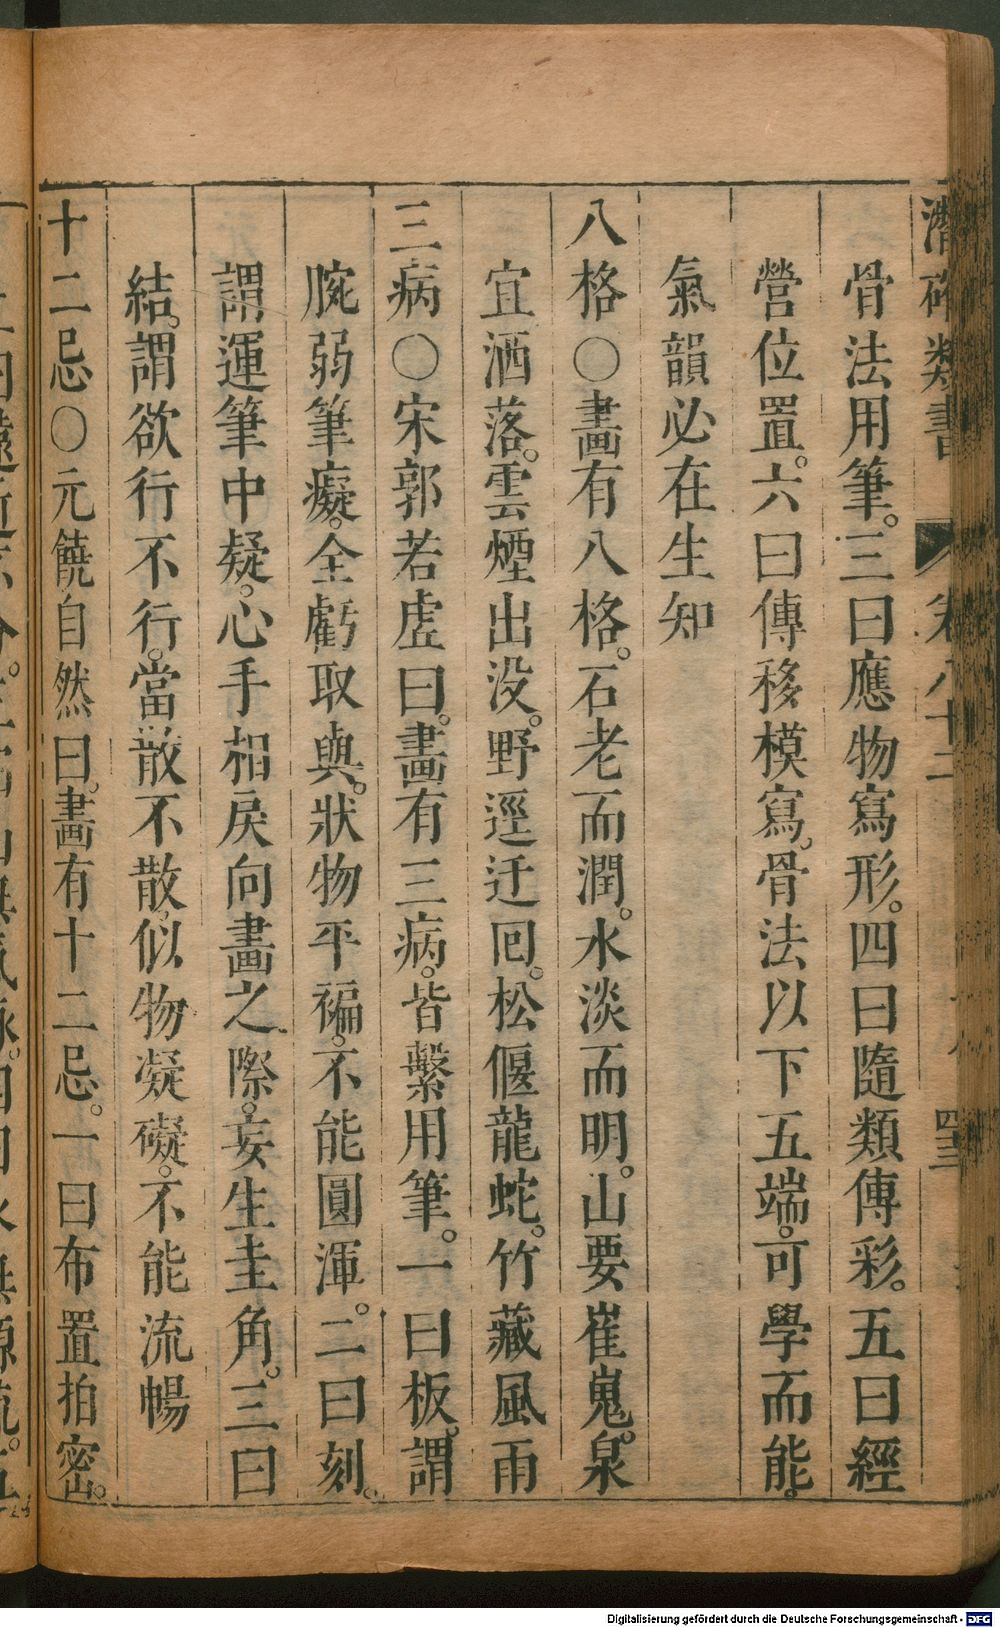 潛確類書 卷八十二 四三
骨法用筆。三曰應物寫形。四曰隨類傳彩。五曰經
營位置。六曰傳移模寫。骨法以下五端。可學而能。
氣韻必在生知
八格〇畫有八格。石老而潤。水淡而明。山要崔嵬。泉
宜洒落。雲煙出沒。野逕迂囘。松偃龍蛇。竹藏風雨
三病〇宋郭若虛曰。畫有三病。皆繫用筆。一曰板。謂
腕弱筆癡。全虧取與。狀物平褊。不能圓渾。二曰刻。
謂運筆中疑。心手相戾向畫之際。妄生圭角。三曰
結。謂欲行不行。當散不散。似物凝礙。不能流暢
十二忌〇元饒自然曰。畫有十二忌。一曰布置拍密。
Digitalisierung gefördert durch die Deutsche Forschungsgemeinschaft - DFG